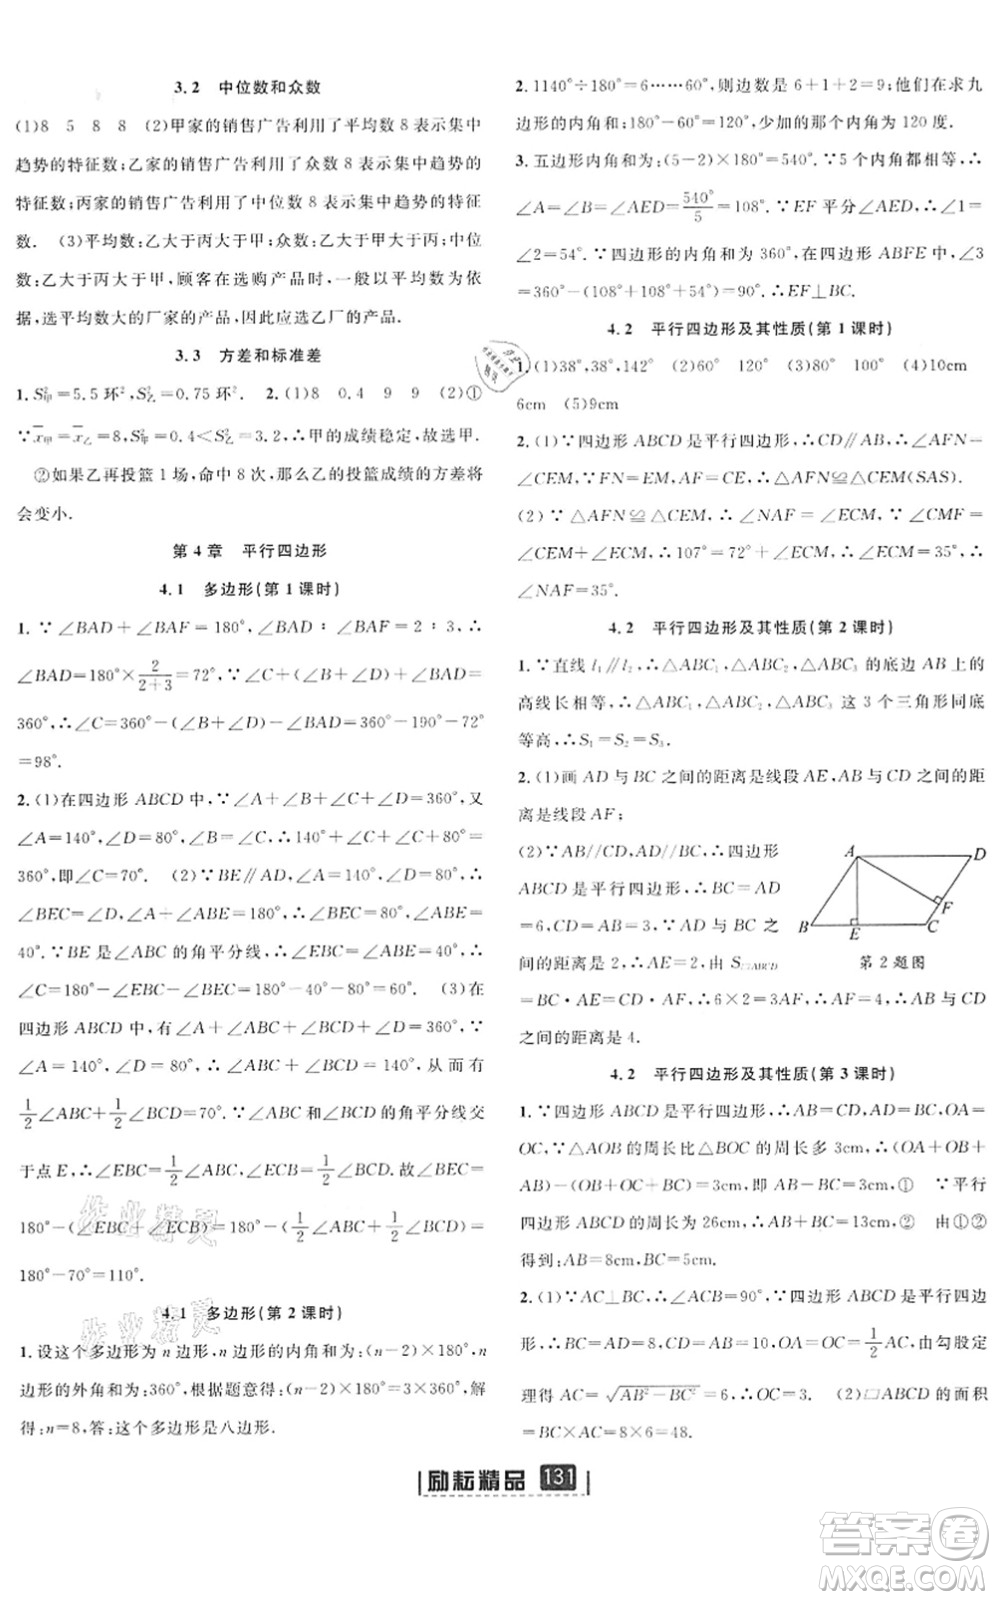 3.2 中位数和众数
(1)8 5 8 8 (2)甲家的销售广告利用了平均数 8 表示集中
趋势的特征数;乙家的销售广告利用了众数 8 表示集中趋势的
特征数;丙家的销售广告利用了中位数 8 表示集中趋势的特征
数. (3)平均数:乙大于丙大于甲;众数:乙大于甲大于丙;中位
数:乙大于丙大于甲,顾客在选购产品时,一般以平均数为依
据,选平均数大的厂家的产品,因此应选乙厂的产品.
3.3 方差和标准差
1. S²甲=5.5 环²,S²乙=0.75 环². 2. (1)8 0.4 9 9 (2)①
∵x̄甲=x̄乙=8,S²甲=0.4<S²乙=3.2,∴甲的成绩稳定,故选甲.
②如果乙再投篮 1 场,命中 8 次,那么乙的投篮成绩的方差将
会变小.
第 4 章 平行四边形
4.1 多边形(第 1 课时)
1. ∵∠BAD+∠BAF=180°,∠BAD∶∠BAF=2∶3,∴
∠BAD=180°×2/(2+3)=72°.∵∠BAD+∠B+∠C+∠D=
360°,∴∠C=360°-(∠B+∠D)-∠BAD=360°-190°-72°
=98°.
2. (1)在四边形 ABCD 中,∵∠A+∠B+∠C+∠D=360°,又
∠A=140°,∠D=80°,∠B=∠C,∴140°+∠C+∠C+80°=
360°,即∠C=70°. (2)∵BE∥AD,∠A=140°,∠D=80°,∴
∠BEC=∠D,∠A+∠ABE=180°.∴∠BEC=80°,∠ABE=
40°.∵BE 是∠ABC 的角平分线,∴∠EBC=∠ABE=40°.∴
∠C=180°-∠EBC-∠BEC=180°-40°-80°=60°. (3)在
四边形 ABCD 中,有∠A+∠ABC+∠BCD+∠D=360°,∵
∠A=140°,∠D=80°,∴∠ABC+∠BCD=140°.从而有
1/2∠ABC+1/2∠BCD=70°.∵∠ABC 和∠BCD 的角平分线交
于点 E,∴∠EBC=1/2∠ABC,∠ECB=1/2∠BCD.故∠BEC=
180°-(∠EBC+∠ECB)=180°-(1/2∠ABC+1/2∠BCD)=
180°-70°=110°.
4.1 多边形(第 2 课时)
1. 设这个多边形为 n 边形,n 边形的内角和为:(n-2)×180°,n
边形的外角和为:360°,根据题意得:(n-2)×180°=3×360°,解
得:n=8,答:这个多边形是八边形.
2. 1140°÷180°=6……60°,则边数是 6+1+2=9;他们在求九
边形的内角和;180°-60°=120°,少加的那个内角为 120 度.
3. 五边形内角和为:(5-2)×180°=540°.∵5 个内角都相等,∴
∠A=∠B=∠AED=540°/5=108°.∵EF 平分∠AED,∴∠1=
∠2=54°.∵四边形的内角和为 360°,∴在四边形 ABFE 中,∠3
=360°-(108°+108°+54°)=90°.∴EF⊥BC.
4.2 平行四边形及其性质(第 1 课时)
1. (1)38°,38°,142° (2)80° (3)80° 100° (4)10cm
6cm (5)9cm
2. (1)∵四边形 ABCD 是平行四边形,∴CD∥AB,∴∠AFN=
∠CEM,∵FN=EM,AF=CE,∴△AFN≌△CEM(SAS).
(2)∵△AFN≌△CEM,∴∠NAF=∠ECM,∵∠CMF=
∠CEM+∠ECM,∴107°=72°+∠ECM,∴∠ECM=35°,∴
∠NAF=35°.
4.2 平行四边形及其性质(第 2 课时)
1. ∵直线 l₁∥l₂,∴△ABC₁,△ABC₂,△ABC₃ 的底边 AB 上的
高线长相等,∴△ABC₁,△ABC₂,△ABC₃ 这 3 个三角形同底
等高,∴S₁=S₂=S₃.
2. (1)画 AD 与 BC 之间的距离是线段 AE,AB 与 CD 之间的距
离是线段 AF;
(2)∵AB//CD,BC//AD,∴四边形
ABCD 是平行四边形,∴BC=AD
=6,CD=AB=3.∵AD 与 BC 之
间的距离为 2,∴AE=2,由 S▱ABCD
=BC·AE=CD·AF,∴6×2=3AF,∴AF=4,∴AB 与 CD
之间的距离是 4.
A D
F
B E C
第 2 题图
4.2 平行四边形及其性质(第 3 课时)
1. ∵四边形 ABCD 是平行四边形,∴AB=CD,AD=BC,OA=
OC,∵△AOB 的周长比△BOC 的周长多 3cm,∴(OA+OB+
AB)-(OB+OC+BC)=3cm,即 AB-BC=3cm,① ∵平行
四边形 ABCD 的周长为 26cm,∴AB+BC=13cm,② 由①②
得到:AB=8cm,BC=5cm.
2. (1)∵AC⊥BC,∴∠ACB=90°.∵四边形 ABCD 是平行四边
形,∴BC=AD=8,AB=CD=10,OA=OC=1/2AC,由勾股定
理得 AC=√(AB²-BC²)=6,∴OC=3. (2)▱ABCD 的面积=
BC×AC=8×6=48.
励耘精品 131
作业精灵
作业精灵
答案卷
MXQE.COM